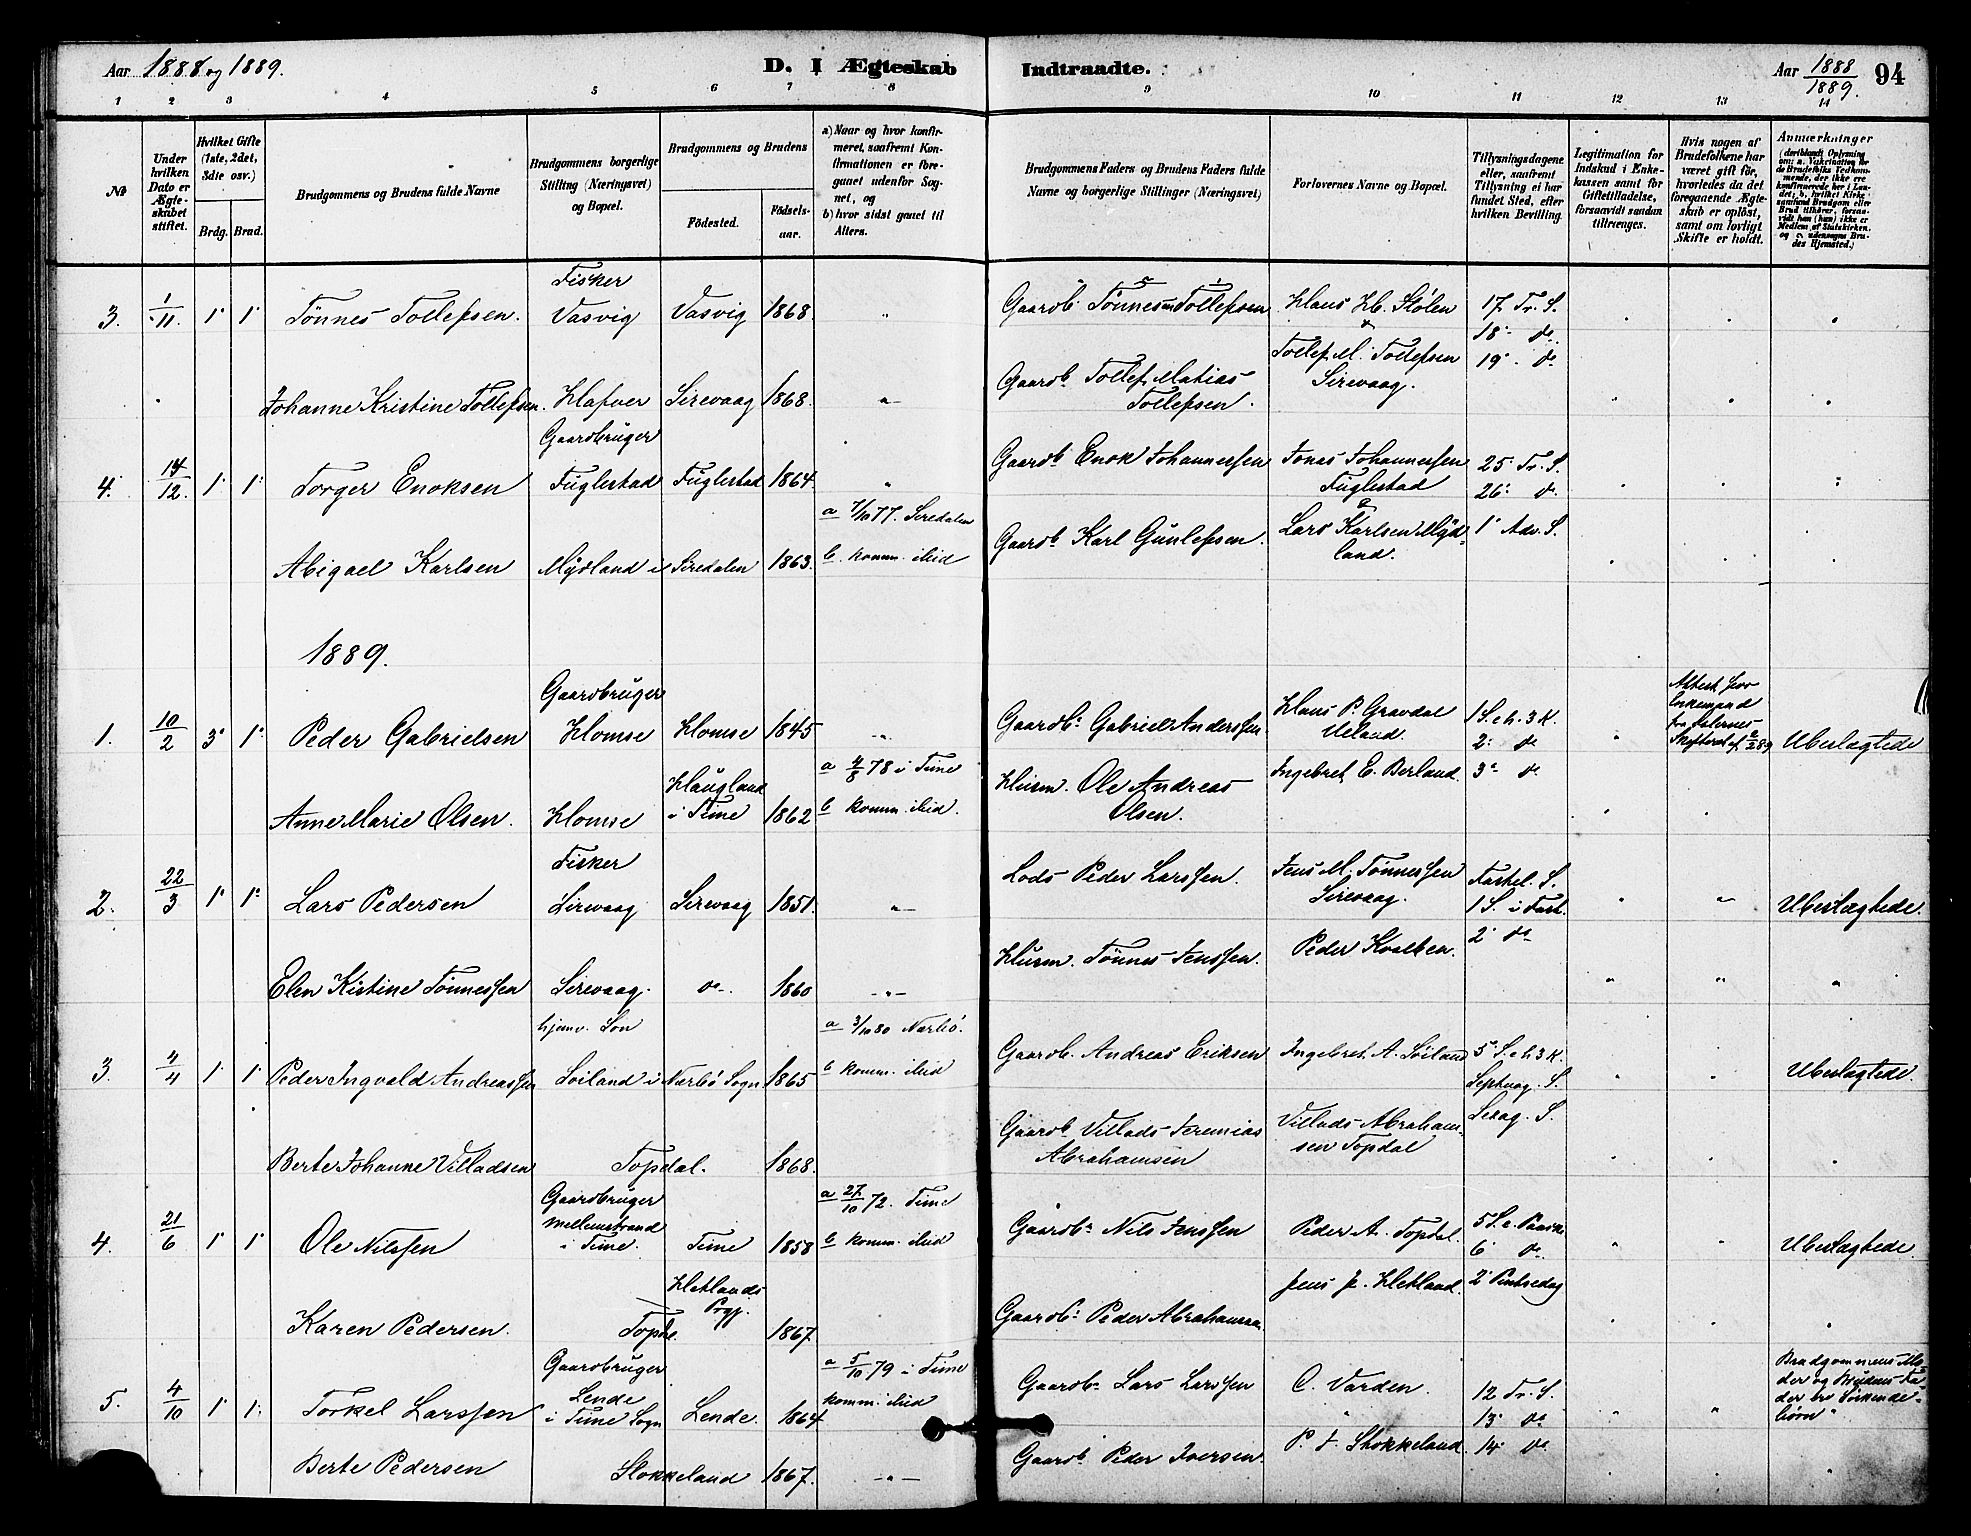 Aar 1888 og 1889.
D. I Ægteskab Indtraadte.
Aar 1888/1889. 94
1 2 3 4 5 6 7 8 9 10 11 12 13 14
No
Under hvilken Dato er Ægteskabet stiftet.
Hvilket Gifte (1ste, 2det, 3die osv.)
Brdg. Brud.
Brudgommens og Brudens fulde Navne
Brudgommens borgerlige Stilling (Næringsvei) og Bopæl.
Brudgommens og Brudens
Fødested. Fødselsaar.
a) Naar og hvor konfirmeret, saafremt Konfirmationen er foregaaet udenfor Sognet, og
b) hvor sidst gaaet til Alters.
Brudgommens Faders og Brudens Faders fulde Navne og borgerlige Stillinger (Næringsvei)
Forlovernes Navne og Bopæl.
Tillysningsdagene eller, saafremt Tillysning ei har fundet Sted, efter hvilken Bevilling.
Legitimation for Indskud i Enkekassen samt for Giftetilladelse, forsaavidt saadan tiltrænges.
Hvis nogen af Brudefolkene har været gift før, hvorledes da det foregaaende Ægteskab er opløst, samt om lovligt Skifte er holdt.
Anmærkninger
3. 1/11. 1 1 Tönnes Tollefsen. Fisker Vasvig Vasvig 1868. " Gaardb. Tönnes Tollefsen Klaus H. Stölen & 17 Tr. S. 18 do. 19 do
Johanne Kristine Tollefsen. Hafver Sirevaag 1868. " Gaardb. Tollef Matias Tollefsen. Tollef M. Tollefsen Sirevaag.
4. 14/12. 1 1 Torger Enoksen Gaardbruger Fuglestad Fuglestad 1864 " Gaardb. Enok Johannessen Jonas Johannessen Fuglestad & 25 Tr. S. 26 do
Abigael Karlsen Mydland i Siredalen 1863. a 7/10 77. Siredalen b. komm. ibid Gaardb. Karl Gunlefsen. Lars Karlsen Mydland. 1 Adv. S.
1889.
1. 10/2 3 1 Peder Gabrielsen Gaardbruger Homse Homse 1845 " Gaardb. Gabriel Anderssen Hans P. Gravdal Ueland. 1 S. e. h. 3 K. 2 do Ubeslægtede
Anne Marie Olsen. Homse Haugland i Time 1862 a 4/8 78 i Time b komm. ibid. Husm. Ole Andreas Olsen. Ingebret E. Berland. 3 do
2. 22/3 1 1 Lars Pedersen Fisker Sirevaag Sirevaag 1851. " Lods Peder Larssen. Jens M. Tönnessen Sirevaag. Fastel. S. 1 S. i Fast. Ubeslægtede.
Elen Kistine Tönnessen Sirevaag. do 1860 " Husm. Tönnes Jenssen. Peder Kvalben. 2 do
3. 4/4 1 1 Peder Ingvald Andreassen hjemv. Sön Söiland i Nærbö Sogn 1865 a 3/10 80 Nærbö. b komm. ibid Gaardb. Andreas Eriksen Ingebret A. Söiland 5 S. e. h. 3 K. Septuag. S. Ubeslægtede.
Berte Johanne Villadsen Topdal. 1868. Gaardb. Villads Jeremias Abrahamsen Villads Abrahamsen Topdal Sexag. S.
4. 21/6 1 1 Ole Nilssen Gaardbruger Mellemstrand i Time. Time 1858 a 27/10 72. Time b komm. ibid Gaardb. Nils Jenssen Peder A. Topdal. 5 S. e. Paaske 6 do Ubeslægtede.
Karen Pedersen. Hetlands Prgj. 1867. Gaardb. Peder Abrahamsen Jens J. Hetland. 2 Pintsedag
5. 4/10 1 1 Torkel Larssen Gaardbruger Lende i Time Sogn Lende. 1864 a 5/10 79 i Time komm. ibid Gaardb. Lars Larssen C. Varden. 12 Tr. S. 13 do Brudgommens Moder og Brudens Fader er Söskendebörn
Berte Pedersen Stokkeland 1867. " Gaardb. Peder Iversen. P. I. Stokkeland. 14 do